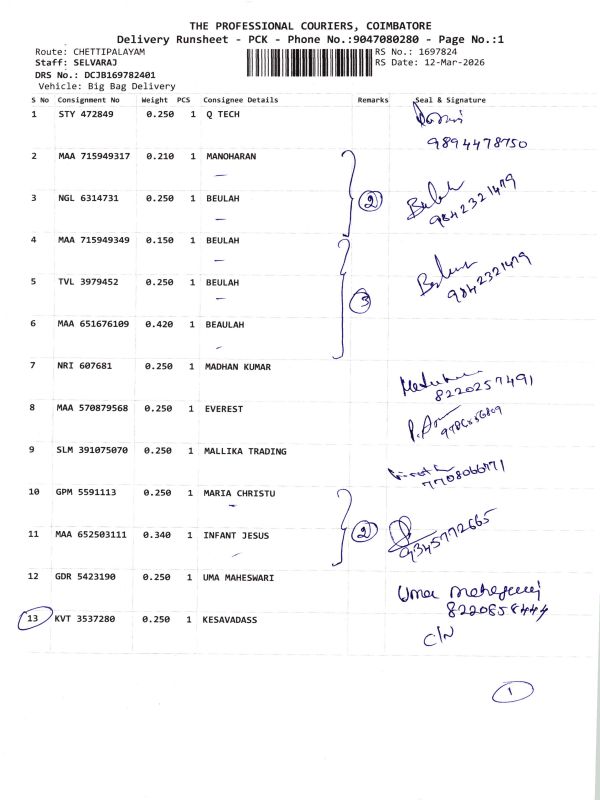 THE PROFESSIONAL COURIERS, COIMBATORE
Delivery Runsheet - PCK - Phone No.:9047080280 - Page No.:1
Route: CHETTIPALAYAM RS No.: 1697824
Staff: SELVARAJ RS Date: 12-Mar-2026
DRS No.: DCJB169782401
Vehicle: Big Bag Delivery
S No Consignment No Weight PCS Consignee Details Remarks Seal & Signature
1 STY 472849 0.250 1 Q TECH
9894478750
2 MAA 715949317 0.210 1 MANOHARAN
3 NGL 6314731 0.250 1 BEULAH 2 9842321479
4 MAA 715949349 0.150 1 BEULAH
5 TVL 3979452 0.250 1 BEULAH 3 9842321479
6 MAA 651676109 0.420 1 BEAULAH
7 NRI 607681 0.250 1 MADHAN KUMAR
8220257491
8 MAA 570879568 0.250 1 EVEREST
9 SLM 391075070 0.250 1 MALLIKA TRADING
7708066971
10 GPM 5591113 0.250 1 MARIA CHRISTU
11 MAA 652503111 0.340 1 INFANT JESUS 2 9345772665
12 GDR 5423190 0.250 1 UMA MAHESWARI Uma
8220858444
13 KVT 3537280 0.250 1 KESAVADASS C/N
1